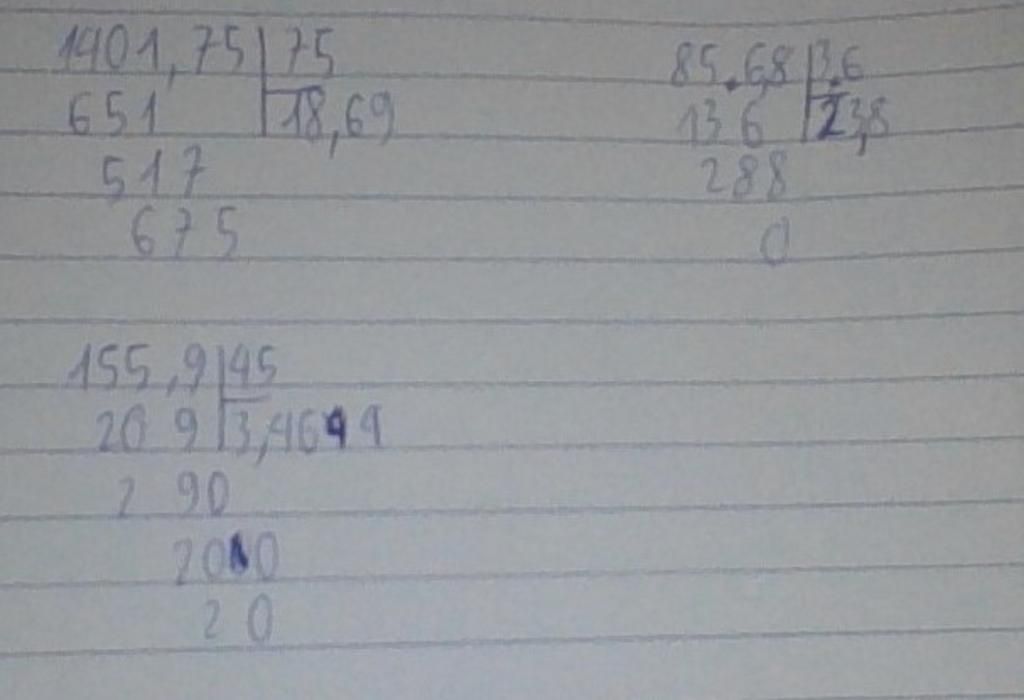 1401,75 75
651 18,69
517
675
85.68 3.6
13 6 23,8
288
0
155,9 45
20 9 3,4644
2 90
200
20